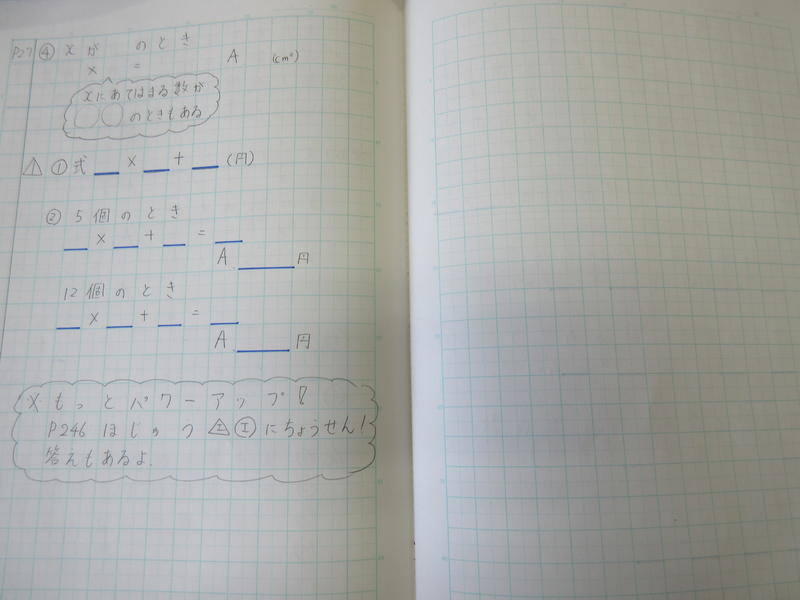 P27 ④ xが のとき
x = A (cm²)
xにあてはまる数が
○○のときもある
△1 ①式 __ × __ + __ (円)
② 5個のとき
__ × __ + __ = __
A __ 円
12個のとき
__ × __ + __ = __
A __ 円
※もっとパワーアップ!!
P246 ほじゅう にちょうせん!
答えもあるよ.